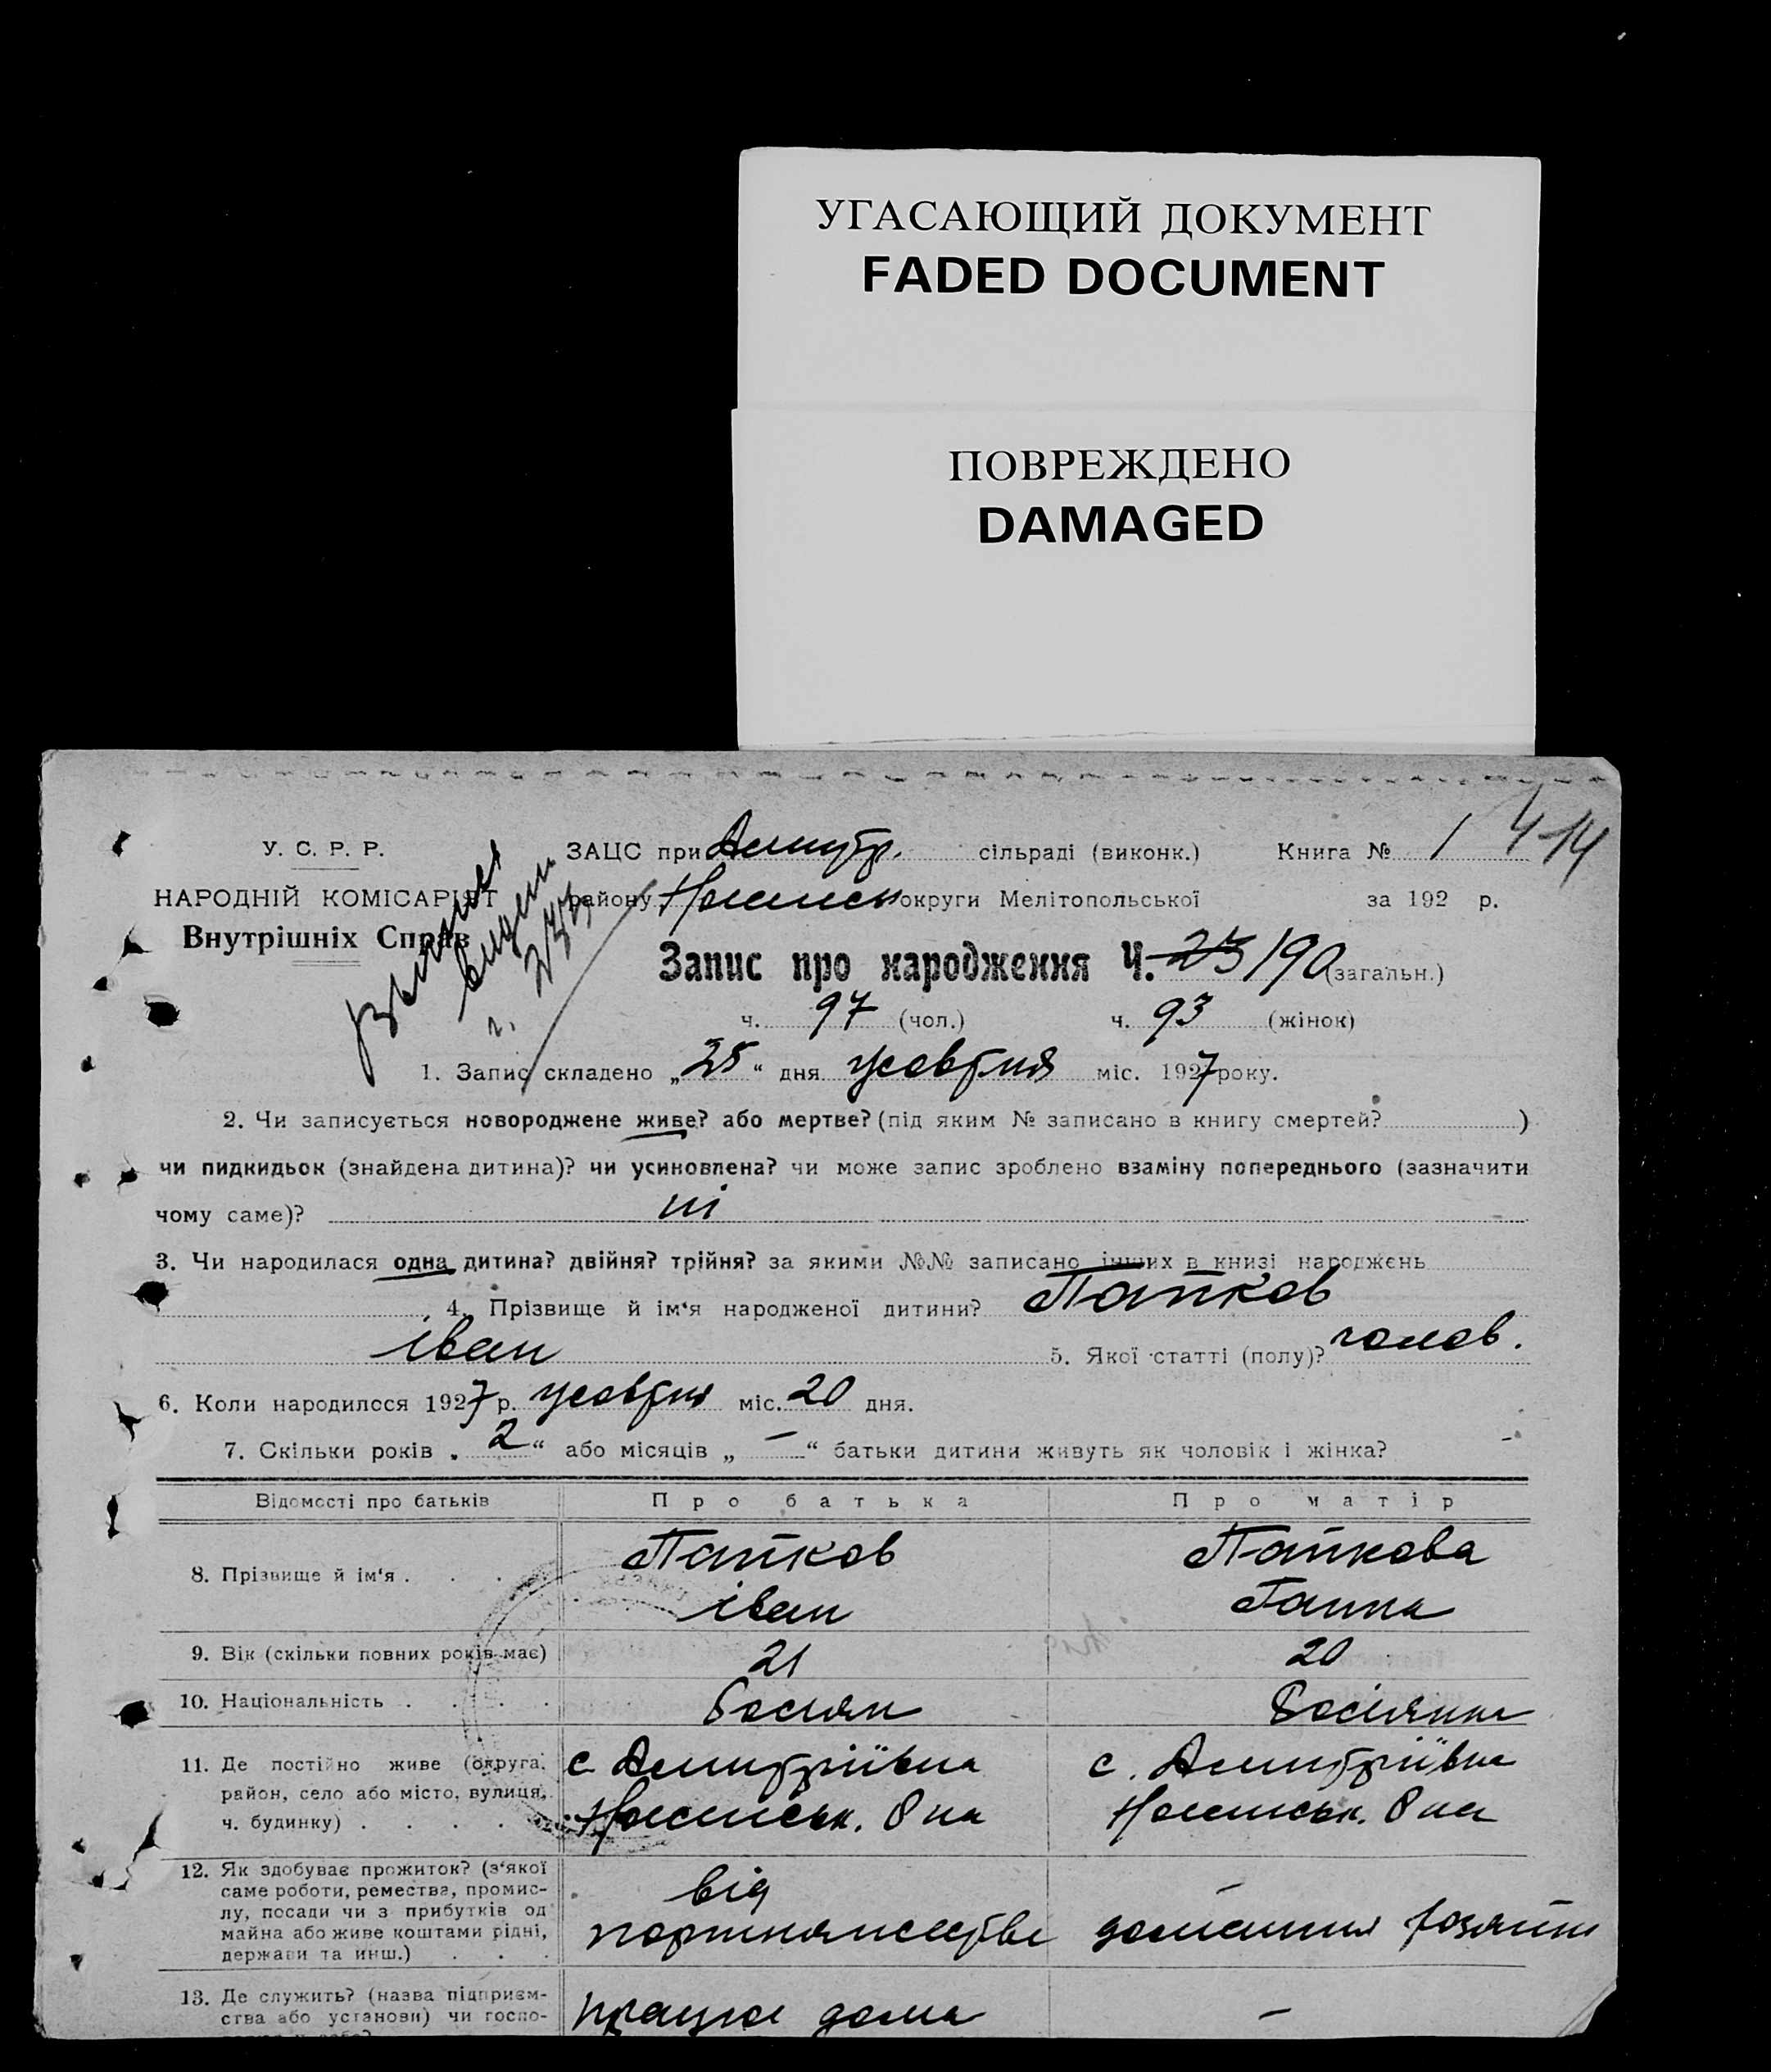 УГАСАЮЩИЙ ДОКУМЕНТ
FADED DOCUMENT
ПОВРЕЖДЕНО
DAMAGED
У. С. Р. Р.
НАРОДНІЙ КОМІСАРІЯТ
Внутрішніх Справ
ЗАЦС при Дмитр. сільраді (виконк.) Книга № 1 414
району округи Мелітопольської за 192 р.
Запис про народження Ч. 190 (загальн.)
ч. 97 (чол.) ч. 93 (жінок)
1. Запис складено „25“ дня жовтня міс. 1927 року.
2. Чи записується новороджене живе? або мертве? (під яким № записано в книгу смертей? )
чи пидкидьок (знайдена дитина)? чи усиновлена? чи може запис зроблено взаміну попереднього (зазначити
чому саме)? ні
3. Чи народилася одна дитина? двійня? трійня? за якими №№ записано інших в книзі народжень
4. Прізвище й ім‘я народженої дитини? Папков
іван 5. Якої статті (полу)? чолов.
6. Коли народилося 1927 р. жовтня міс. 20 дня.
7. Скільки років „2“ або місяців „—“ батьки дитини живуть як чоловік і жінка?
Відомості про батьків Про батька Про матір
8. Прізвище й ім‘я . . . . Папков Папкова
іван Ганна
9. Вік (скільки повних років має) 21 20
10. Національність . . . . Росіян Росіянка
11. Де постійно живе (округа, район, село або місто, вулиця, ч. будинку) . . . . с Дмитріївка с. Дмитріївка
р на р на
12. Як здобуває прожиток? (з‘якої саме роботи, ремества, промислу, посади чи з прибутків од майна або живе коштами рідні, держави та инш.) . . . від
домашня
13. Де служить? (назва підприєм-
ства або установи) чи госпо- працює дома —